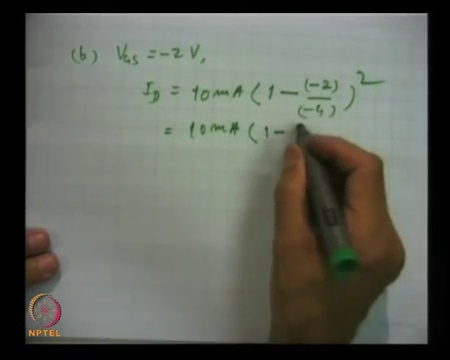 (b) VGS = -2 V,
ID = 10 mA (1 - (-2)/(-4))2
= 10 mA (1 -
NPTEL